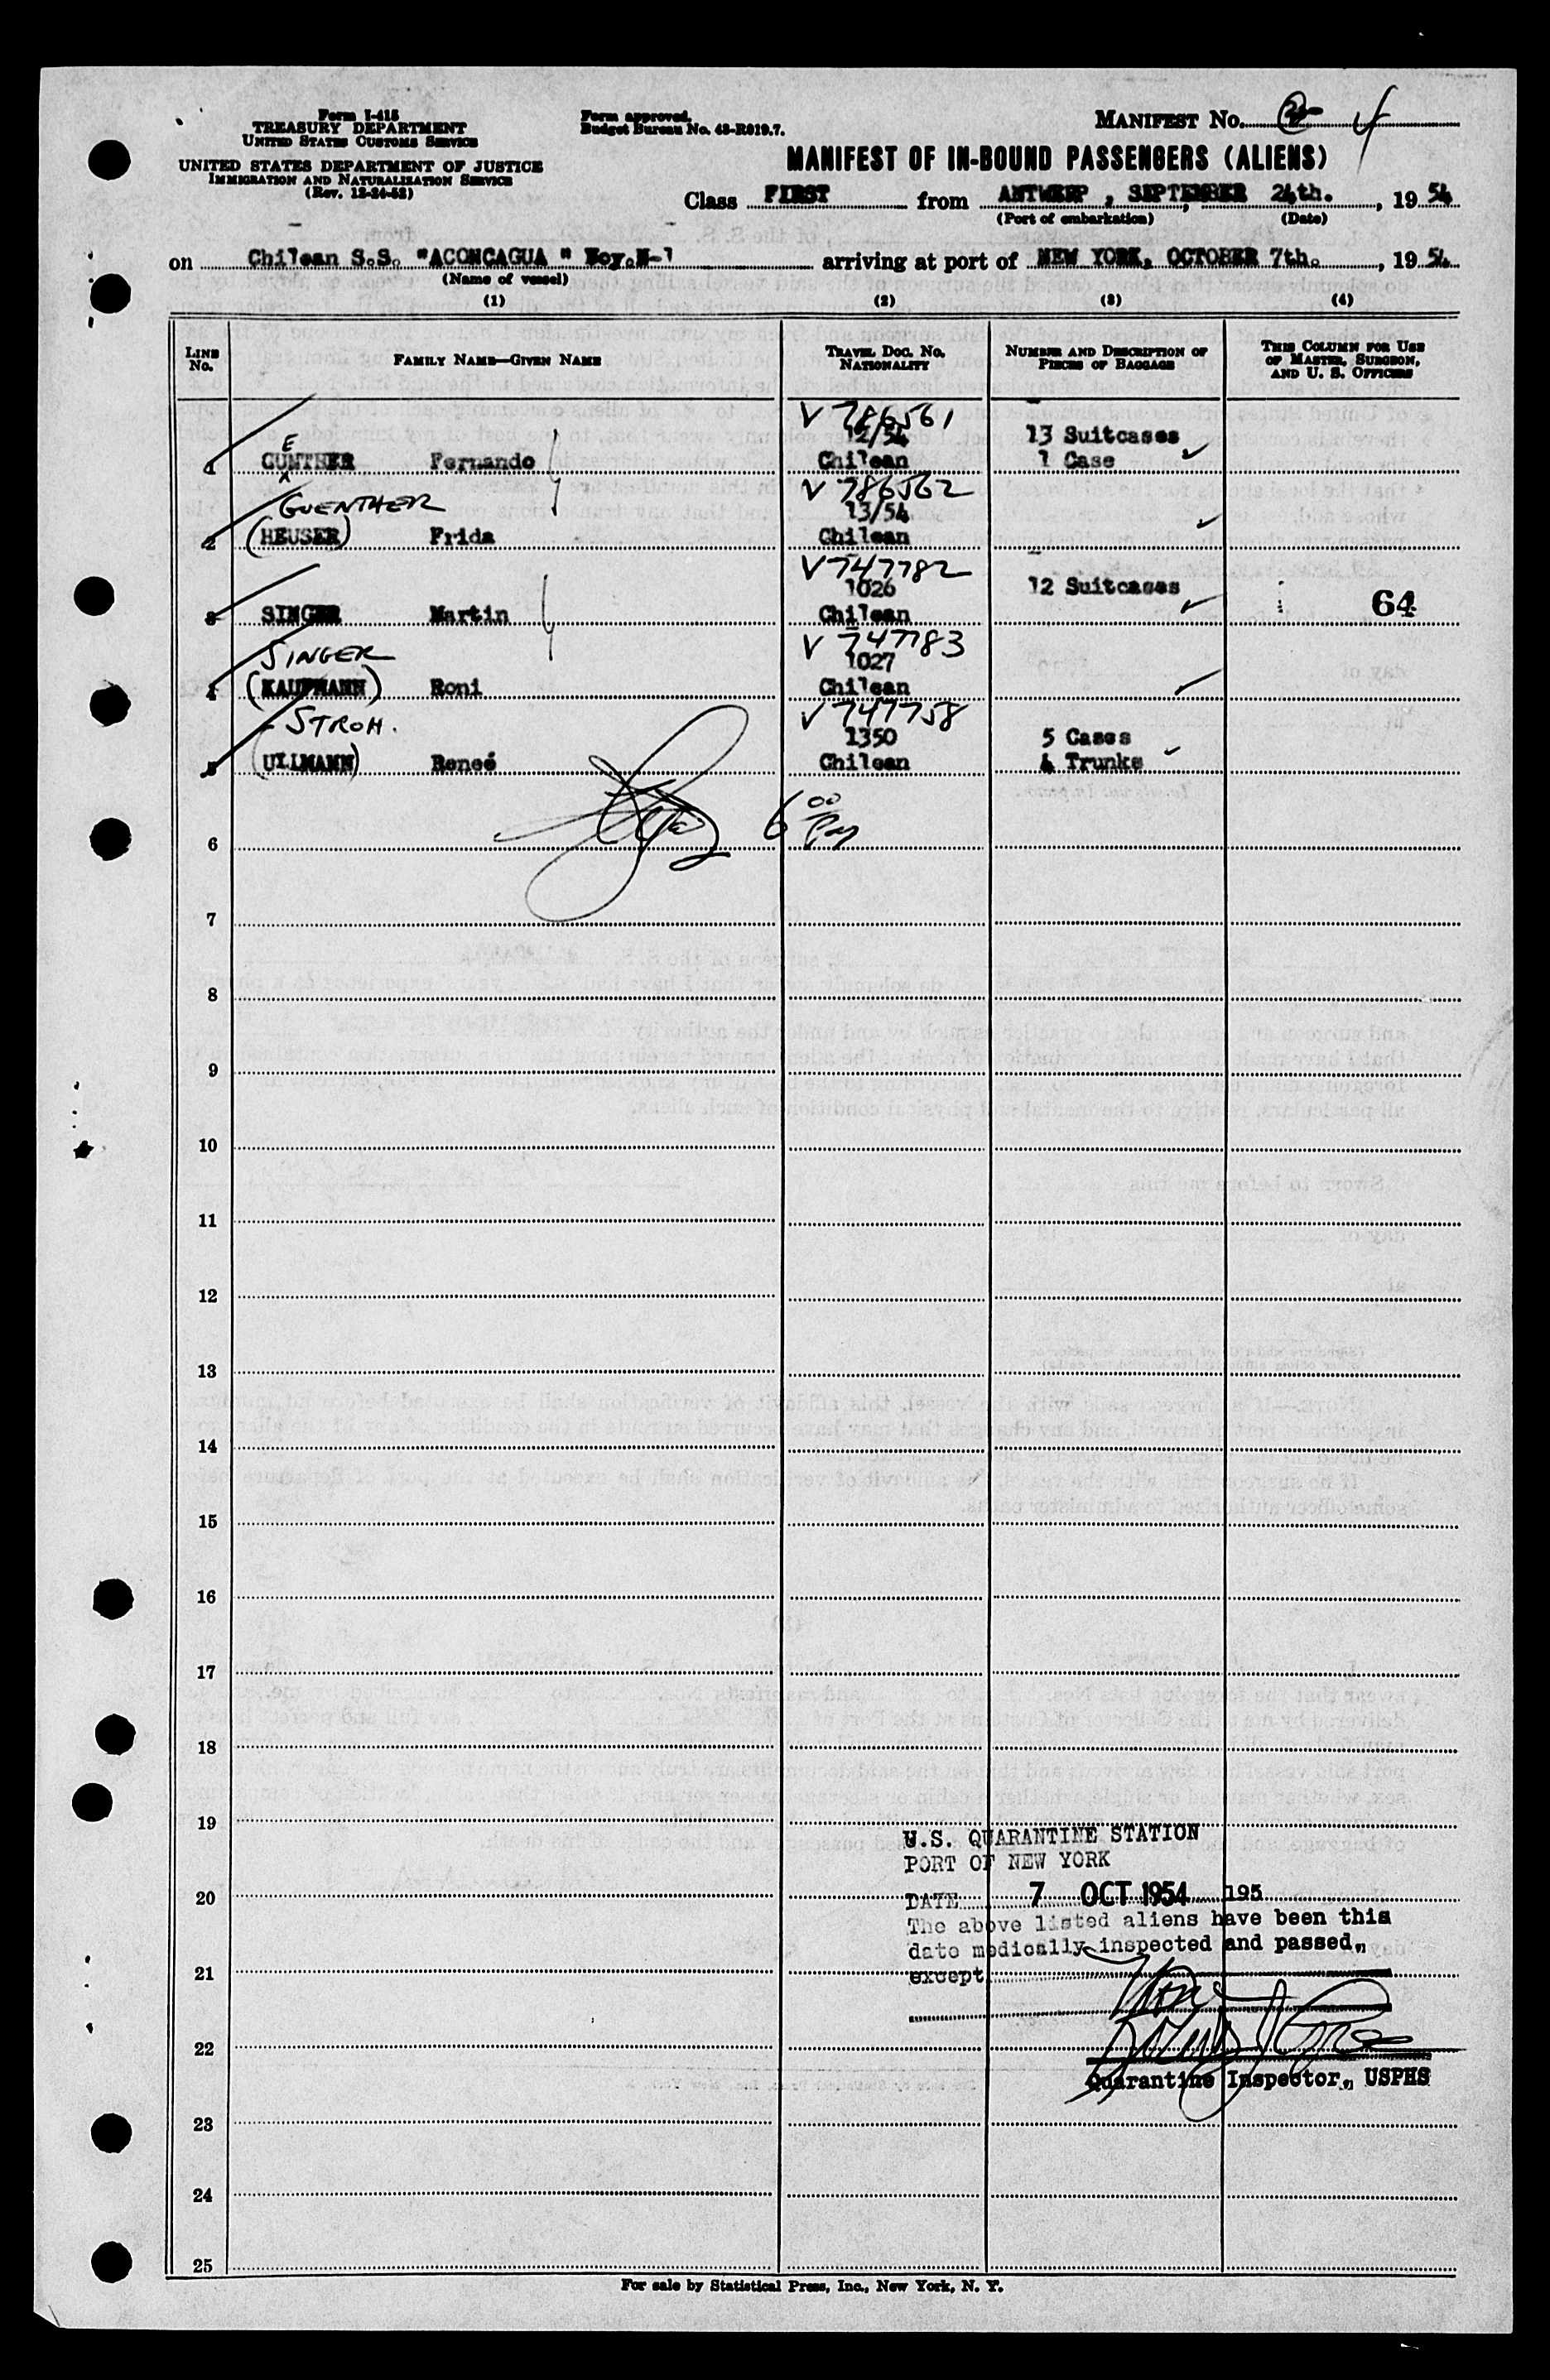 Form I-415
TREASURY DEPARTMENT
UNITED STATES CUSTOMS SERVICE
UNITED STATES DEPARTMENT OF JUSTICE
IMMIGRATION AND NATURALIZATION SERVICE
(Rev. 12-24-52)
Form approved.
Budget Bureau No. 43-R019.7.
MANIFEST No. 4
MANIFEST OF IN-BOUND PASSENGERS (ALIENS)
Class FIRST from ANTWERP , SEPTEMBER 24th. , 19 54
(Port of embarkation) (Date)
on Chilean S.S. "ACONCAGUA " Voy.N-1 arriving at port of NEW YORK, OCTOBER 7th. , 19 54
(Name of vessel)
(1) (2) (3) (4)
LINE No. FAMILY NAME—GIVEN NAME TRAVEL DOC. NO. NATIONALITY NUMBER AND DESCRIPTION OF PIECES OF BAGGAGE THIS COLUMN FOR USE OF MASTER, SURGEON, AND U. S. OFFICERS
V 786561
E 12/54 13 Suitcases
1 GUNTHER Fernando Chilean 1 Case
V 786562
GUENTHER 13/54
2 (HEUSER) Frida Chilean
V 747782
1026 12 Suitcases
3 SINGER Martin Chilean 64
V 747783
SINGER 1027
4 (KAUFMANN) Roni Chilean
V 747758
STROH. 1350 5 Cases
5 (ULLMANN) Reneé Chilean 4 Trunks
6 6 00
7
8
9
10
11
12
13
14
15
16
17
18
19
U.S. QUARANTINE STATION
PORT OF NEW YORK
20 DATE 7 OCT 1954 195
The above listed aliens have been this
date medically inspected and passed,
21 except
22
Quarantine Inspector, USPHS
23
24
25
For sale by Statistical Press, Inc., New York, N. Y.